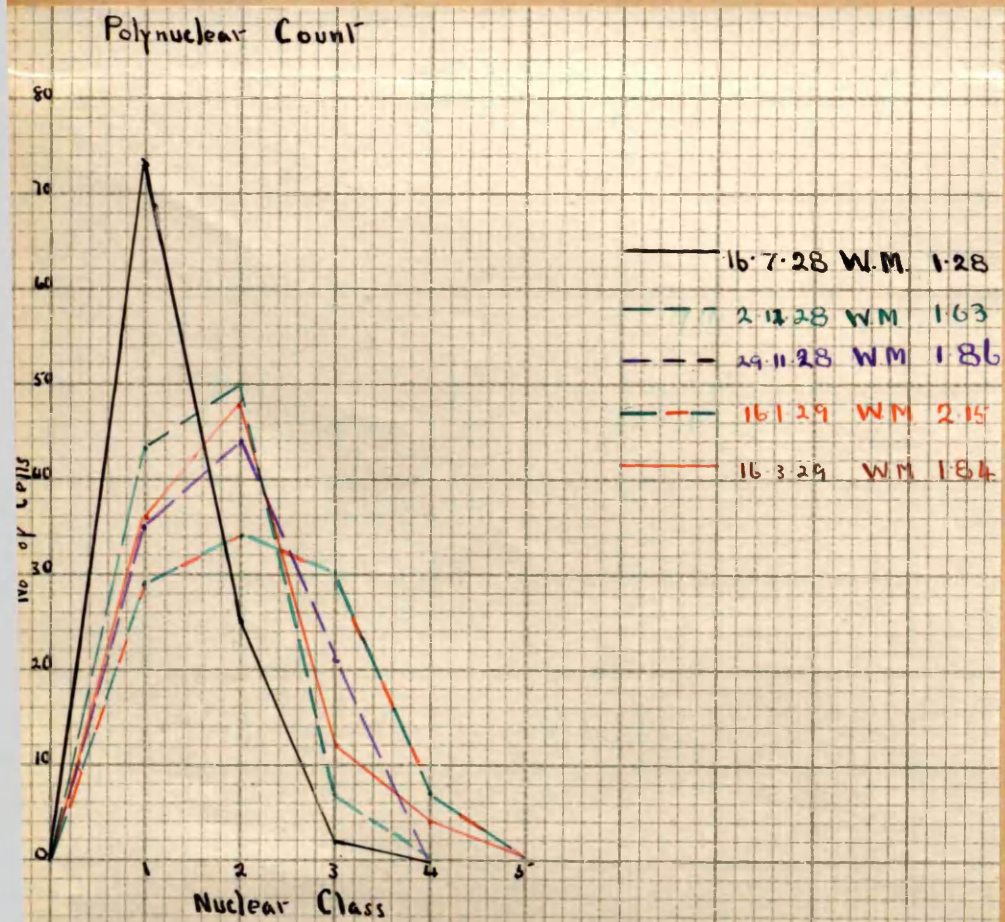 Polynuclear Count
80
70
60
50
40
30
20
10
0
No of cells
1 2 3 4 5
Nuclear Class
16·7·28 W.M. 1·28
28 W M 1·63
29·11·28 W M 1·86
16·1·29 W M 2·15
16·3·29 W M 1·84